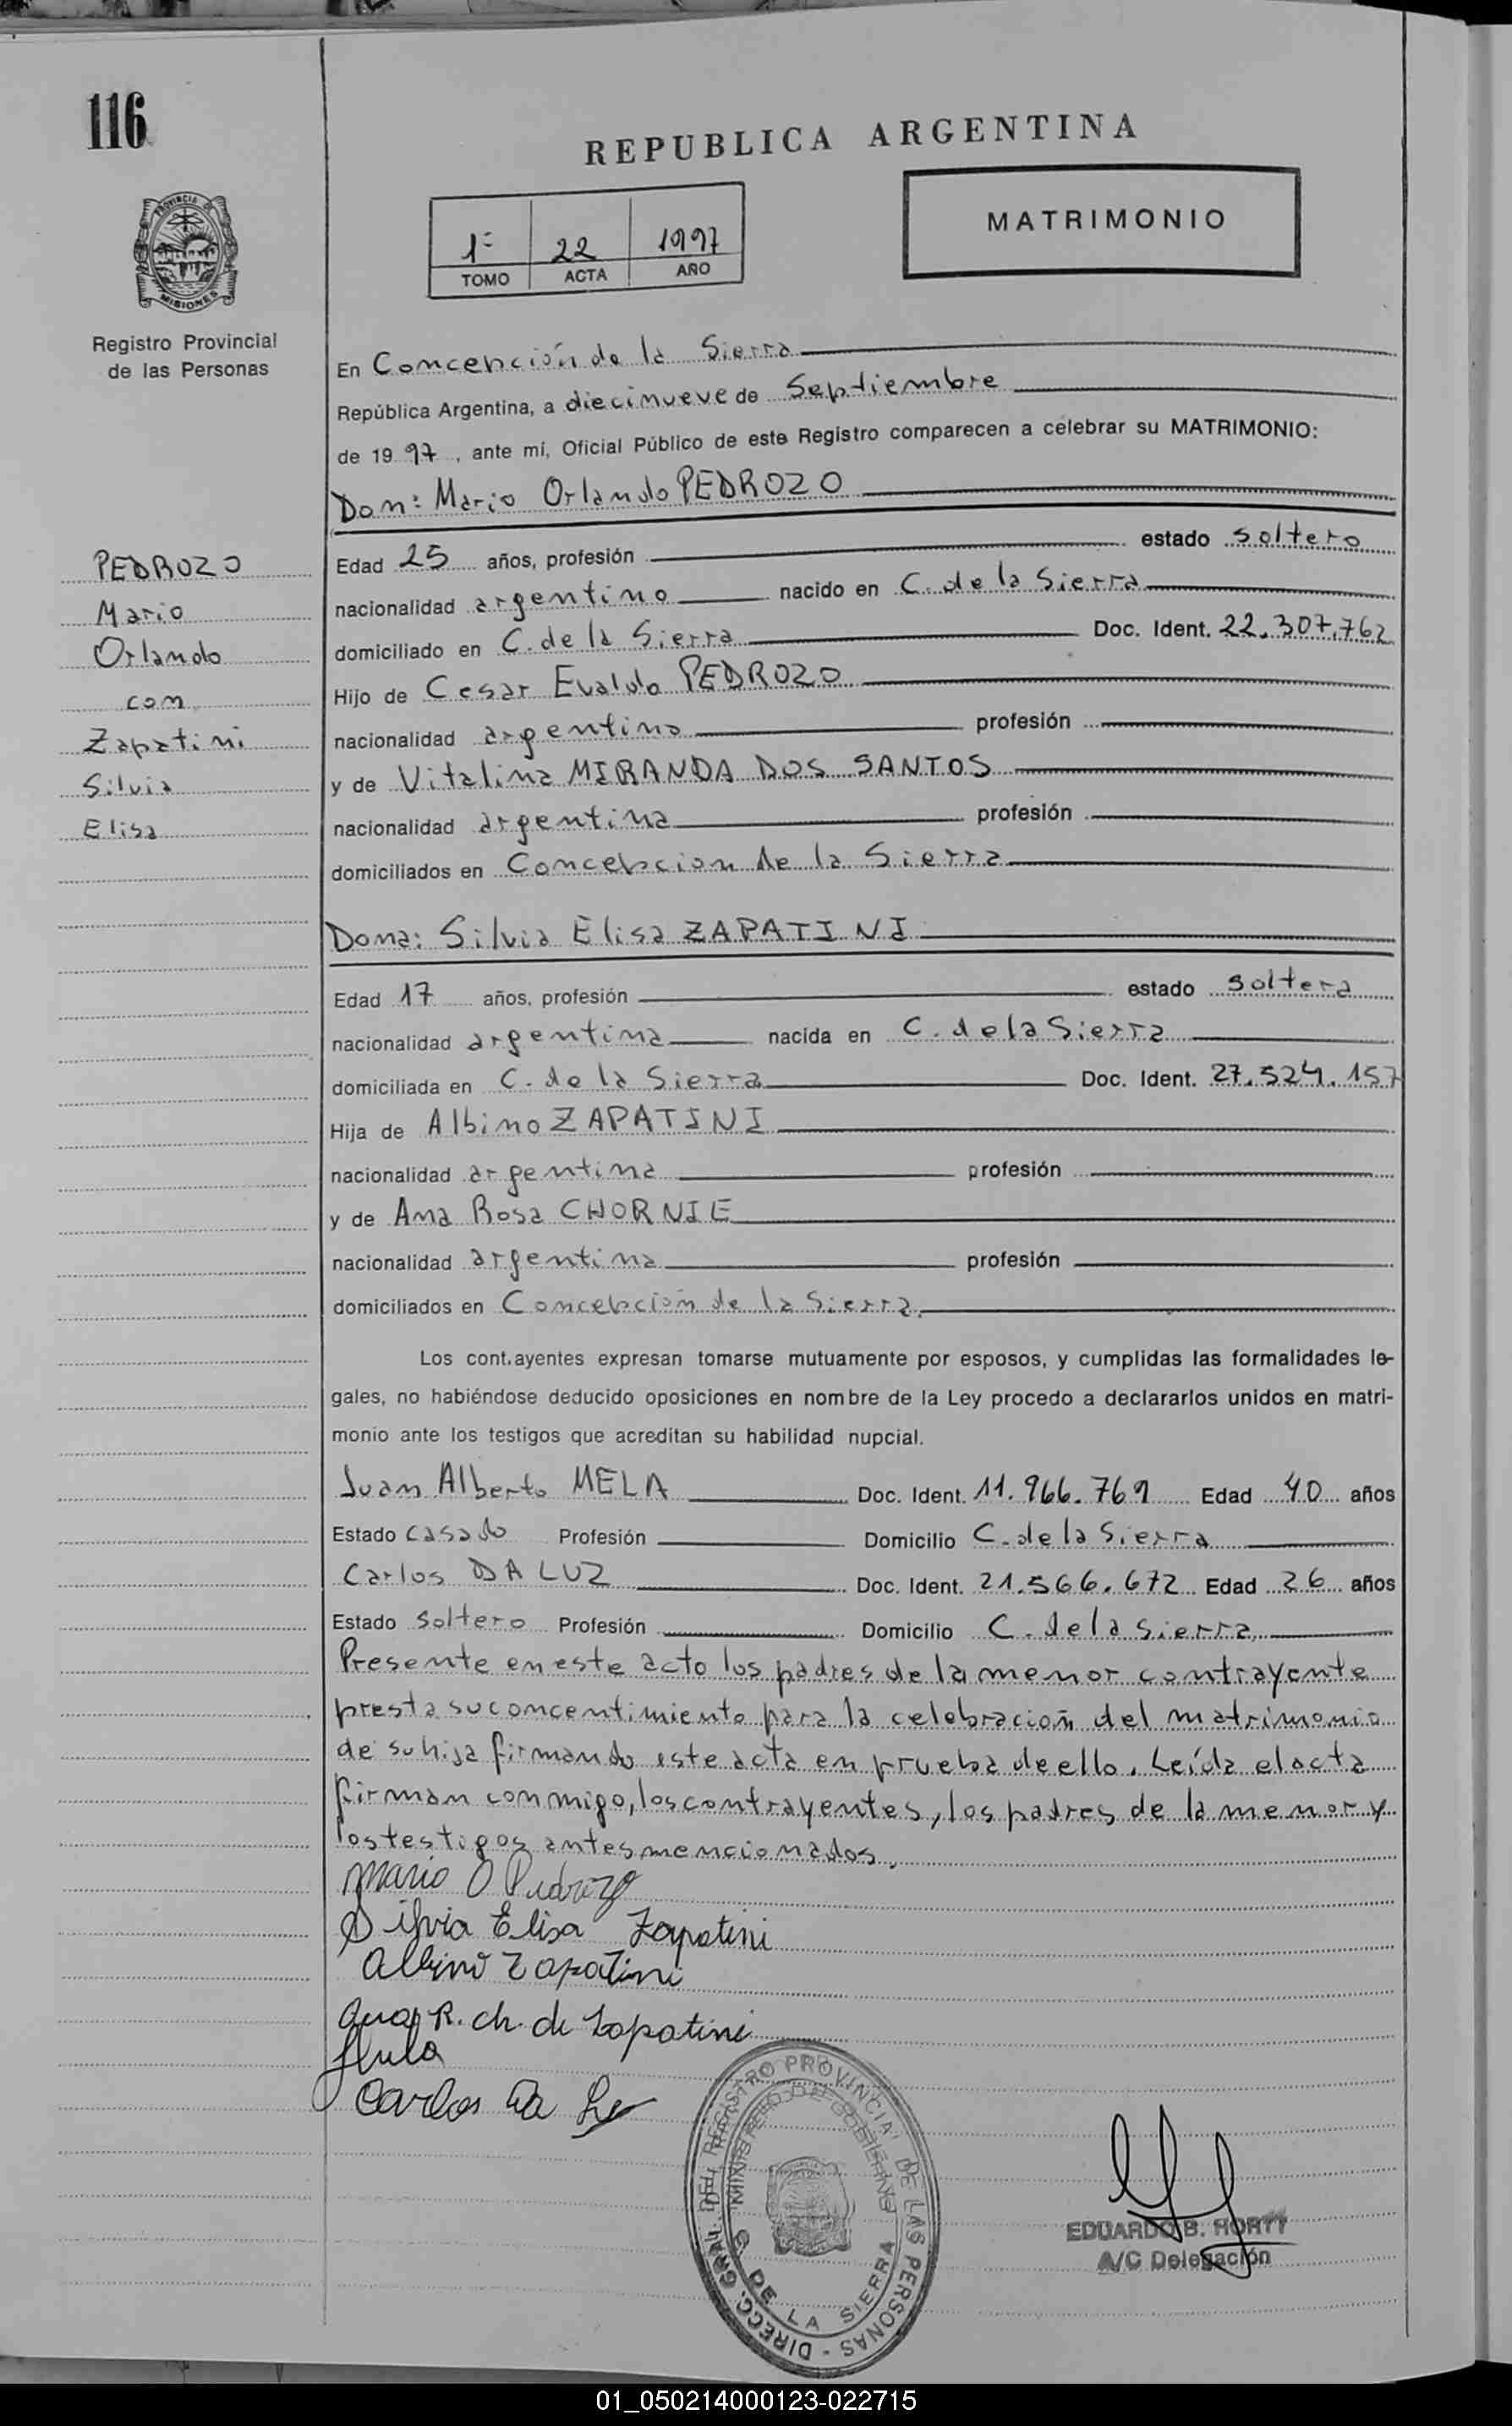 116
REPUBLICA ARGENTINA
PROVINCIA DE
MISIONES
Registro Provincial
de las Personas
1º 22 1997
TOMO ACTA AÑO
MATRIMONIO
En Concepción de la Sierra
República Argentina, a diecinueve de Septiembre
de 19 97, ante mí, Oficial Público de este Registro comparecen a celebrar su MATRIMONIO:
Don: Mario Orlando PEDROZO
PEDROZO
Mario
Orlando
con
Zapatini
Silvia
Elisa
Edad 25 años, profesión estado soltero
nacionalidad argentino nacido en C. de la Sierra
domiciliado en C. de la Sierra Doc. Ident. 22.307.762
Hijo de Cesar Evaldo PEDROZO
nacionalidad argentino profesión
y de Vitalina MIRANDA DOS SANTOS
nacionalidad argentina profesión
domiciliados en Concepcion de la Sierra
Dona: Silvia Elisa ZAPATINI
Edad 17 años, profesión estado soltera
nacionalidad argentina nacida en C. de la Sierra
domiciliada en C. de la Sierra Doc. Ident. 27.524.157
Hija de Albino ZAPATINI
nacionalidad argentina profesión
y de Ana Rosa CHORNIE
nacionalidad argentina profesión
domiciliados en Concepción de la Sierra.
Los cont.ayentes expresan tomarse mutuamente por esposos, y cumplidas las formalidades le-
gales, no habiéndose deducido oposiciones en nombre de la Ley procedo a declararlos unidos en matri-
monio ante los testigos que acreditan su habilidad nupcial.
Juan Alberto MELA Doc. Ident. 11.966.769 Edad 40 años
Estado casado Profesión Domicilio C. de la Sierra
Carlos DA LUZ Doc. Ident. 21.566.672 Edad 26 años
Estado soltero Profesión Domicilio C. de la sierra.
Presente en este acto los padres de la menor contrayente
presta su concentimiento para la celebración del matrimonio
de su hija firmando este acta en prueba de ello. Leída el acta
firman conmigo, los contrayentes, los padres de la menor y
los testigos antes mencionados.
Mario O Pedrozo
Silvia Elisa Zapatini
Albino Zapatini
Ana R. ch. de Zapatini
Carlos Da
DIRECC. GRAL. DEL REGISTRO PROVINCIAL DE LAS PERSONAS
MINISTERIO DE GOBIERNO
C. DE LA SIERRA
EDUARDO B. HORTT
A/C Delegación
01_050214000123-022715